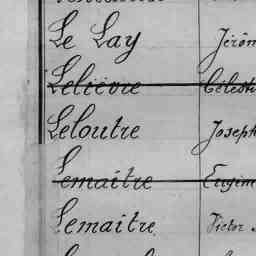 Le Lay Jérôm
Lelièvre Célesti
Leloutre Joseph
Lemaitre Eugèn
Lemaitre Victor